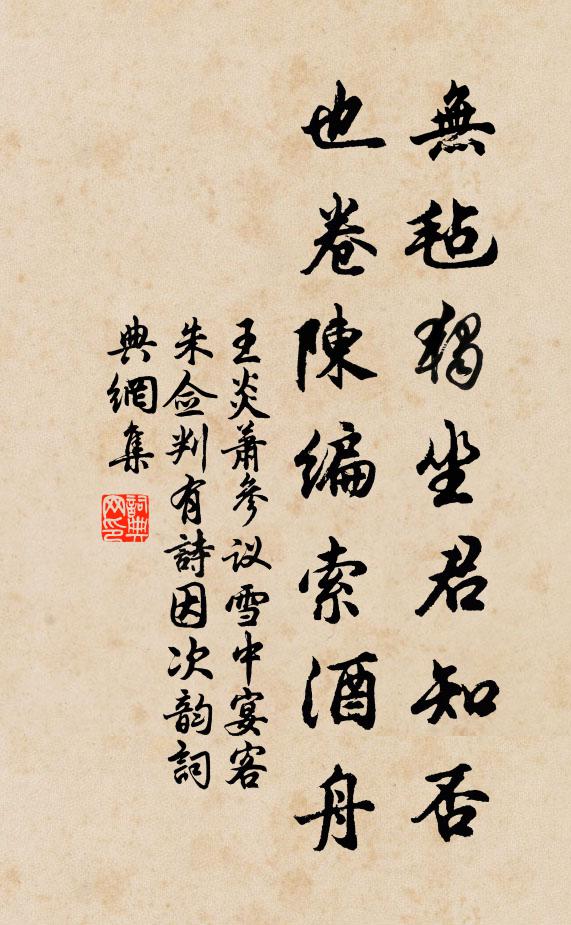 無毡獨坐君知否
也卷陳編索酒舟
王炎蕭參议雪中宴客
朱佥判有詩因次韵詞
典網集
詞典网印